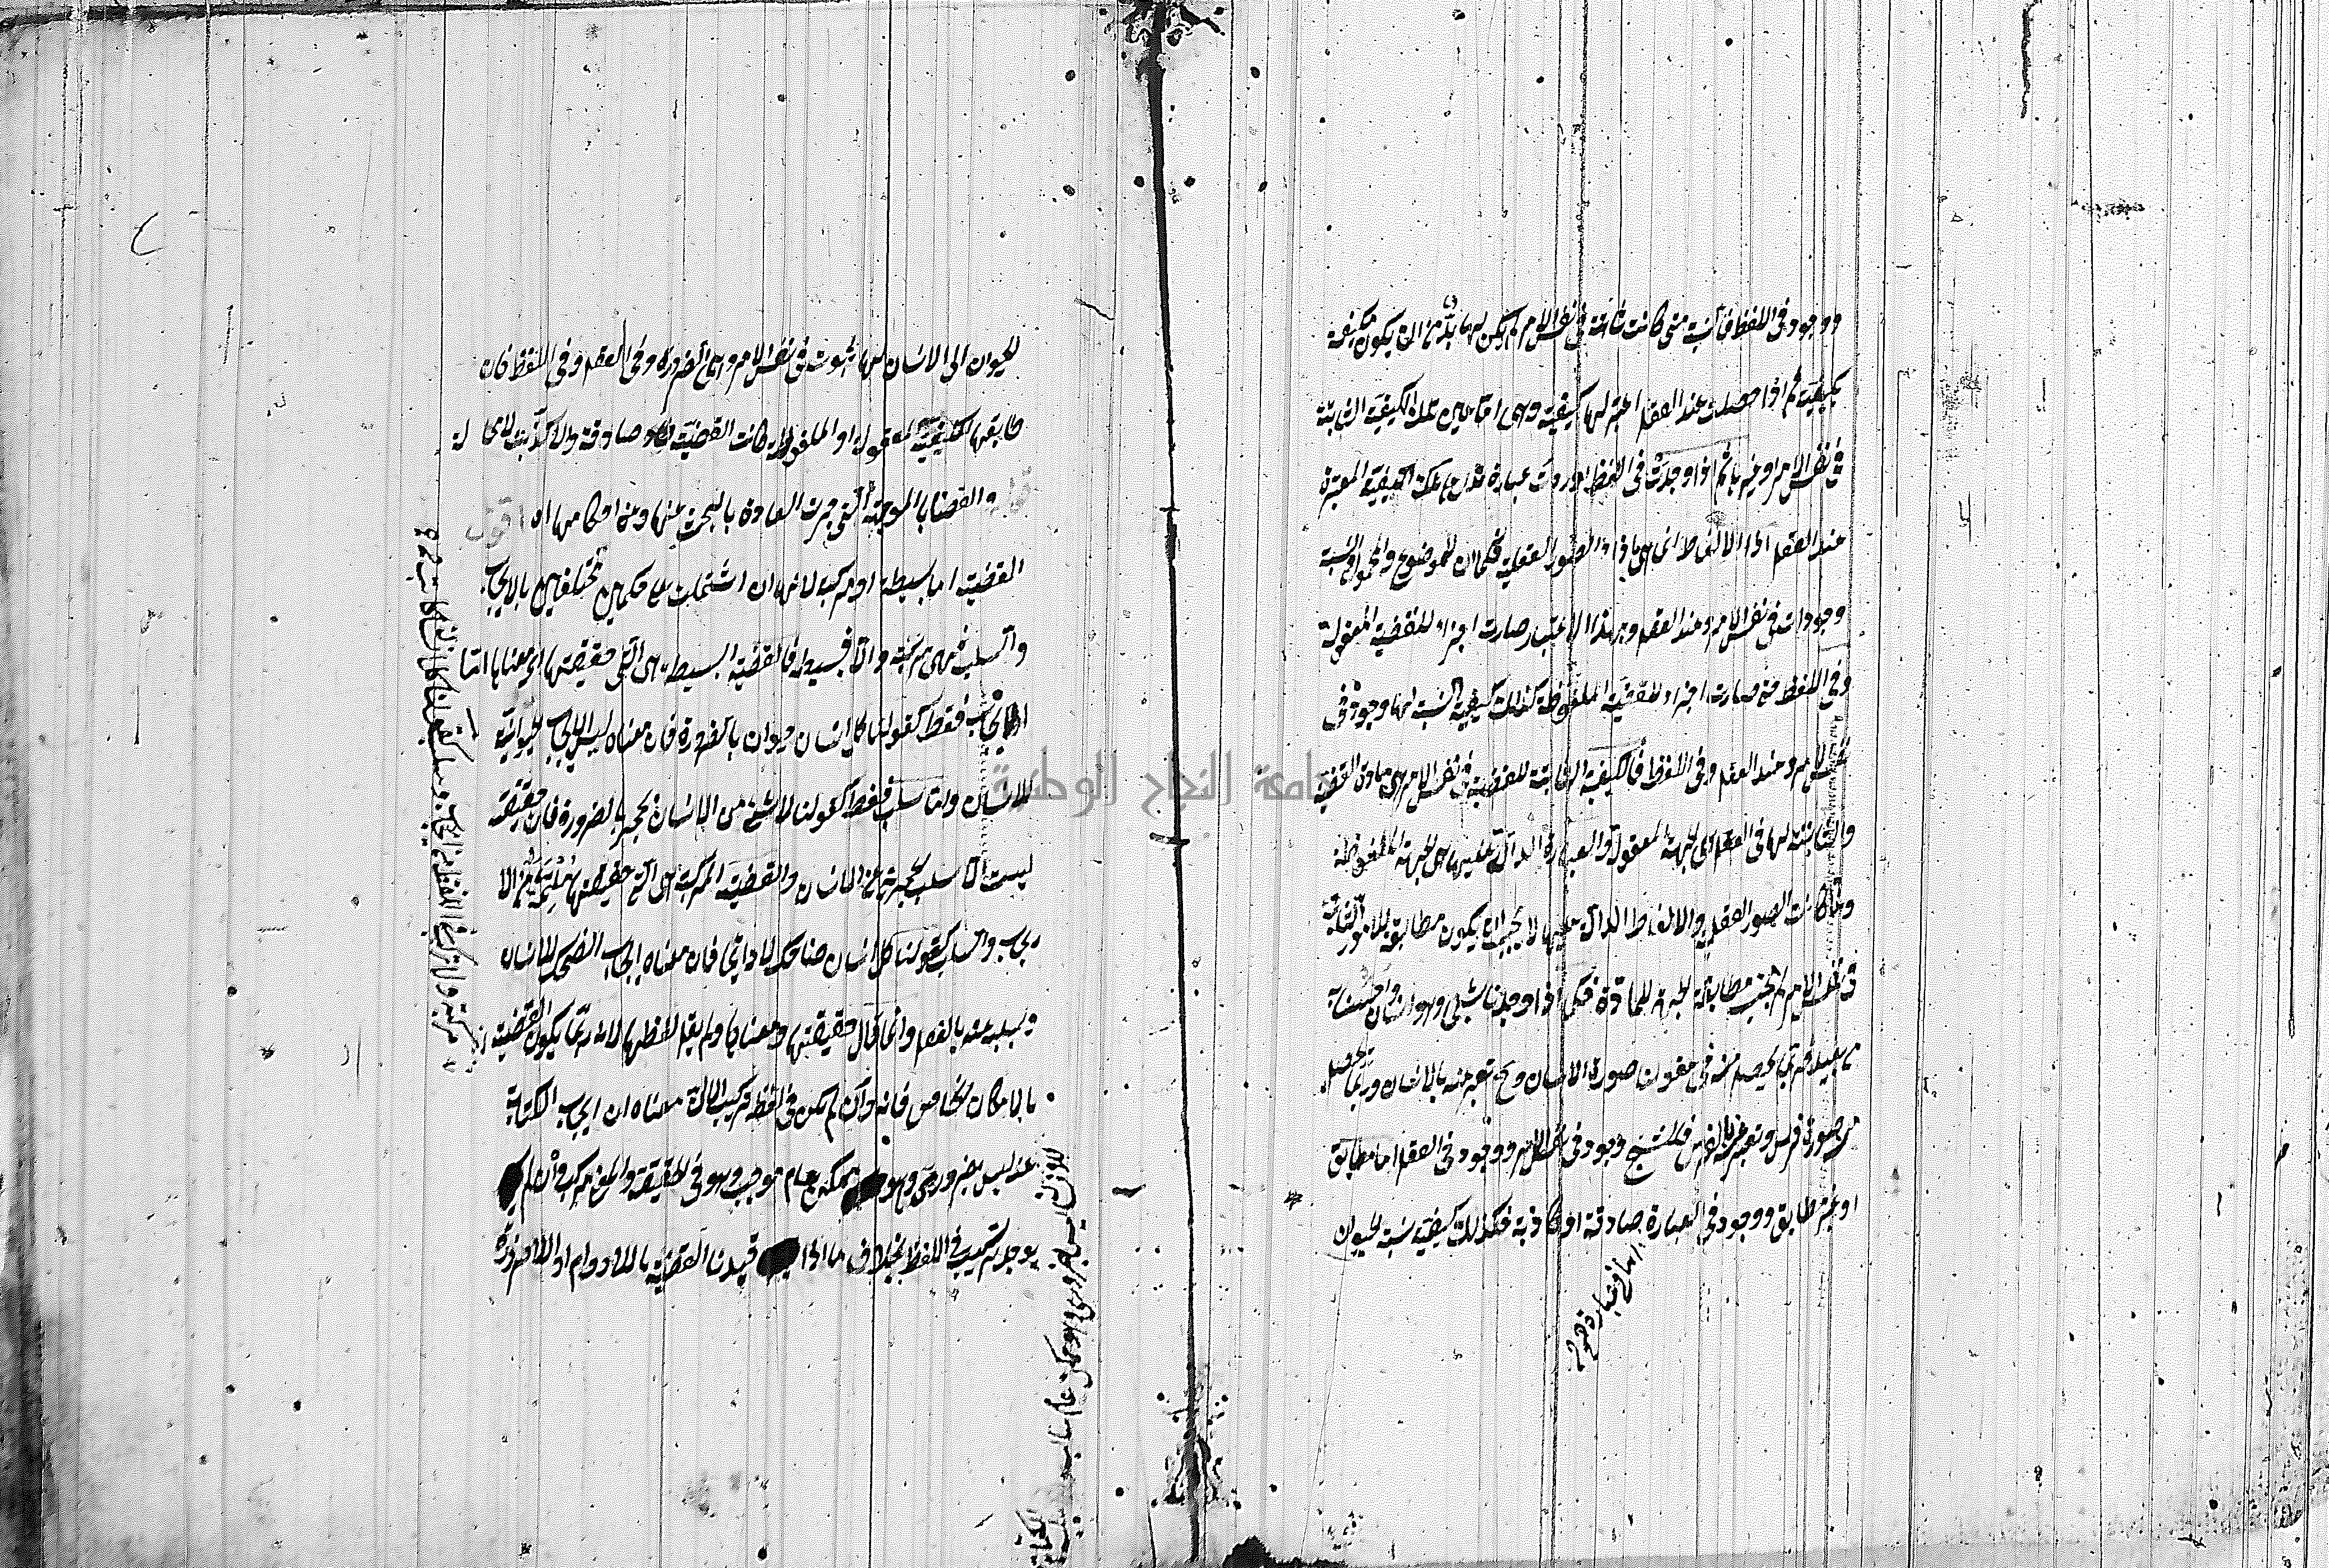 ووجود في اللفظ فالنسبة متى كانت ثابتة في نفس الامر لم يكن لها بد من ان يكون مكيفة
بكيفية ثم اذا حصلت عند العقل اعتبر لها كيفية وهي اما عين تلك الكيفية الثابتة
في نفس الامر او غيرها ثم اذا وجدت في اللفظ اوردت عبارة تدل على تلك الكيفية المعتبرة
عند العقل اذ الالفاظ انما هي بازاء الصور العقلية فكما ان للموضوع والمحمول والنسبة
وجودات في نفس الامر وعند العقل وبهذا الاعتبار صارت اجزاء للقضية المعقولة
وفي اللفظ حتى صارت اجزاء للقضية الملفوظة كذلك كيفية النسبة لها وجود في
نفس الامر وعند العقل وفي اللفظ فالكيفية الثابتة للنسبة في نفس الامر هي مادة القضية
والثابتة لها في العقل هي الجهة المعقولة والعبارة الدالة عليها هي الجهة الملفوظة
ولما كانت الصور العقلية والالفاظ الدالة عليها لا يجب ان يكون مطابقة للامور الثابتة
في نفس الامر لم يجب مطابقة الجهة للمادة فكما اذا وجدنا شبحا وهو انسان واحسسناه
من بعيد فربما يحصل منه في عقولنا صورة الانسان وح نعبر عنه بالانسان وربما يحصل
منه صورة فرس ونعبر عنه بالفرس فللشبح وجود في نفس الامر ووجود في العقل اما مطابق
او غير مطابق ووجود في العبارة صادقة او كاذبة فكذلك كيفية نسبة الحيوان
للحيوان الى الانسان لها ثبوت في نفس الامر وهي الضرورة وفي العقل وفي اللفظ فان
طابقها الكيفية المعقولة او الملفوظة كانت القضية صادقة والا كذبت لا محالة
والقضايا الموجهة التي جرت العادة بالبحث عنها وعن احكامها اه اقول
القضية اما بسيطة او مركبة لانها ان اشتملت على حكمين مختلفين بالايجاب
والسلب فهي مركبة والا فبسيطة فالقضية البسيطة هي التي حقيقتها اي معناها اما
ايجاب فقط كقولنا كل انسان حيوان بالضرورة فان معناه ليس الا ايجاب الحيوانية
للانسان واما سلب فقط كقولنا لا شئ من الانسان بحجر بالضرورة فان حقيقته
ليست الا سلب الحجرية عن الانسان والقضية المركبة هي التي حقيقتها ملتئمة من الا
يجاب والسلب كقولنا كل انسان ضاحك لا دائما فان معناه ايجاب الضحك للانسان
وسلبه عنه بالفعل وانما قال حقيقتها ومعناها ولم يقل لفظها لانه ربما يكون القضية
بالامكان الخاص فانه وان لم يكن في لفظه تركيب الا ان معناه ان ايجاب الكتابة
عنه ليس بضروري وهو ممكن عام موجب وهو في الحقيقة والمعنى مركب وان لم
يوجد تركيب في اللفظ بخلاف ما اذا قيدنا القضية باللادوام او اللاضرورة
للانسان ليس بضروري وهو ممكن عام سالب
جامعة النجاح الوطنية